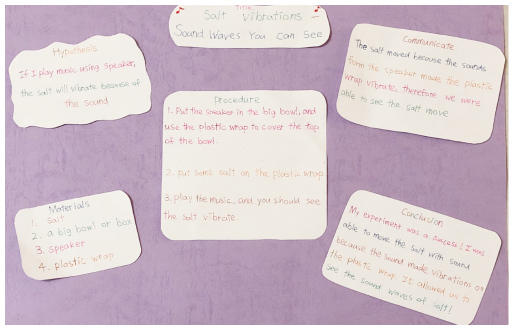 Title
Salt Vibrations –
Sound Waves You Can See
Hypothesis
If I play music using speaker,
the salt will vibrate because of
the sound
Materials
1. Salt
2. a big bowl or box
3. speaker
4. plastic wrap
Procedure
1. Put the speaker in the big bowl, and
use the plastic wrap to cover the top
of the bowl.
2. put some salt on the plastic wrap
3. play the music, and you should see
the salt vibrate.
Communicate
The salt moved because the sounds
form the speaker made the plastic
wrap vibrate, therefore we were
able to see the salt move
Conclusion
My experiment was a success! I was
able to move the salt with sound
because the sound made vibrations on
the plastic wrap. It allowed us to
see the sound waves of salt!